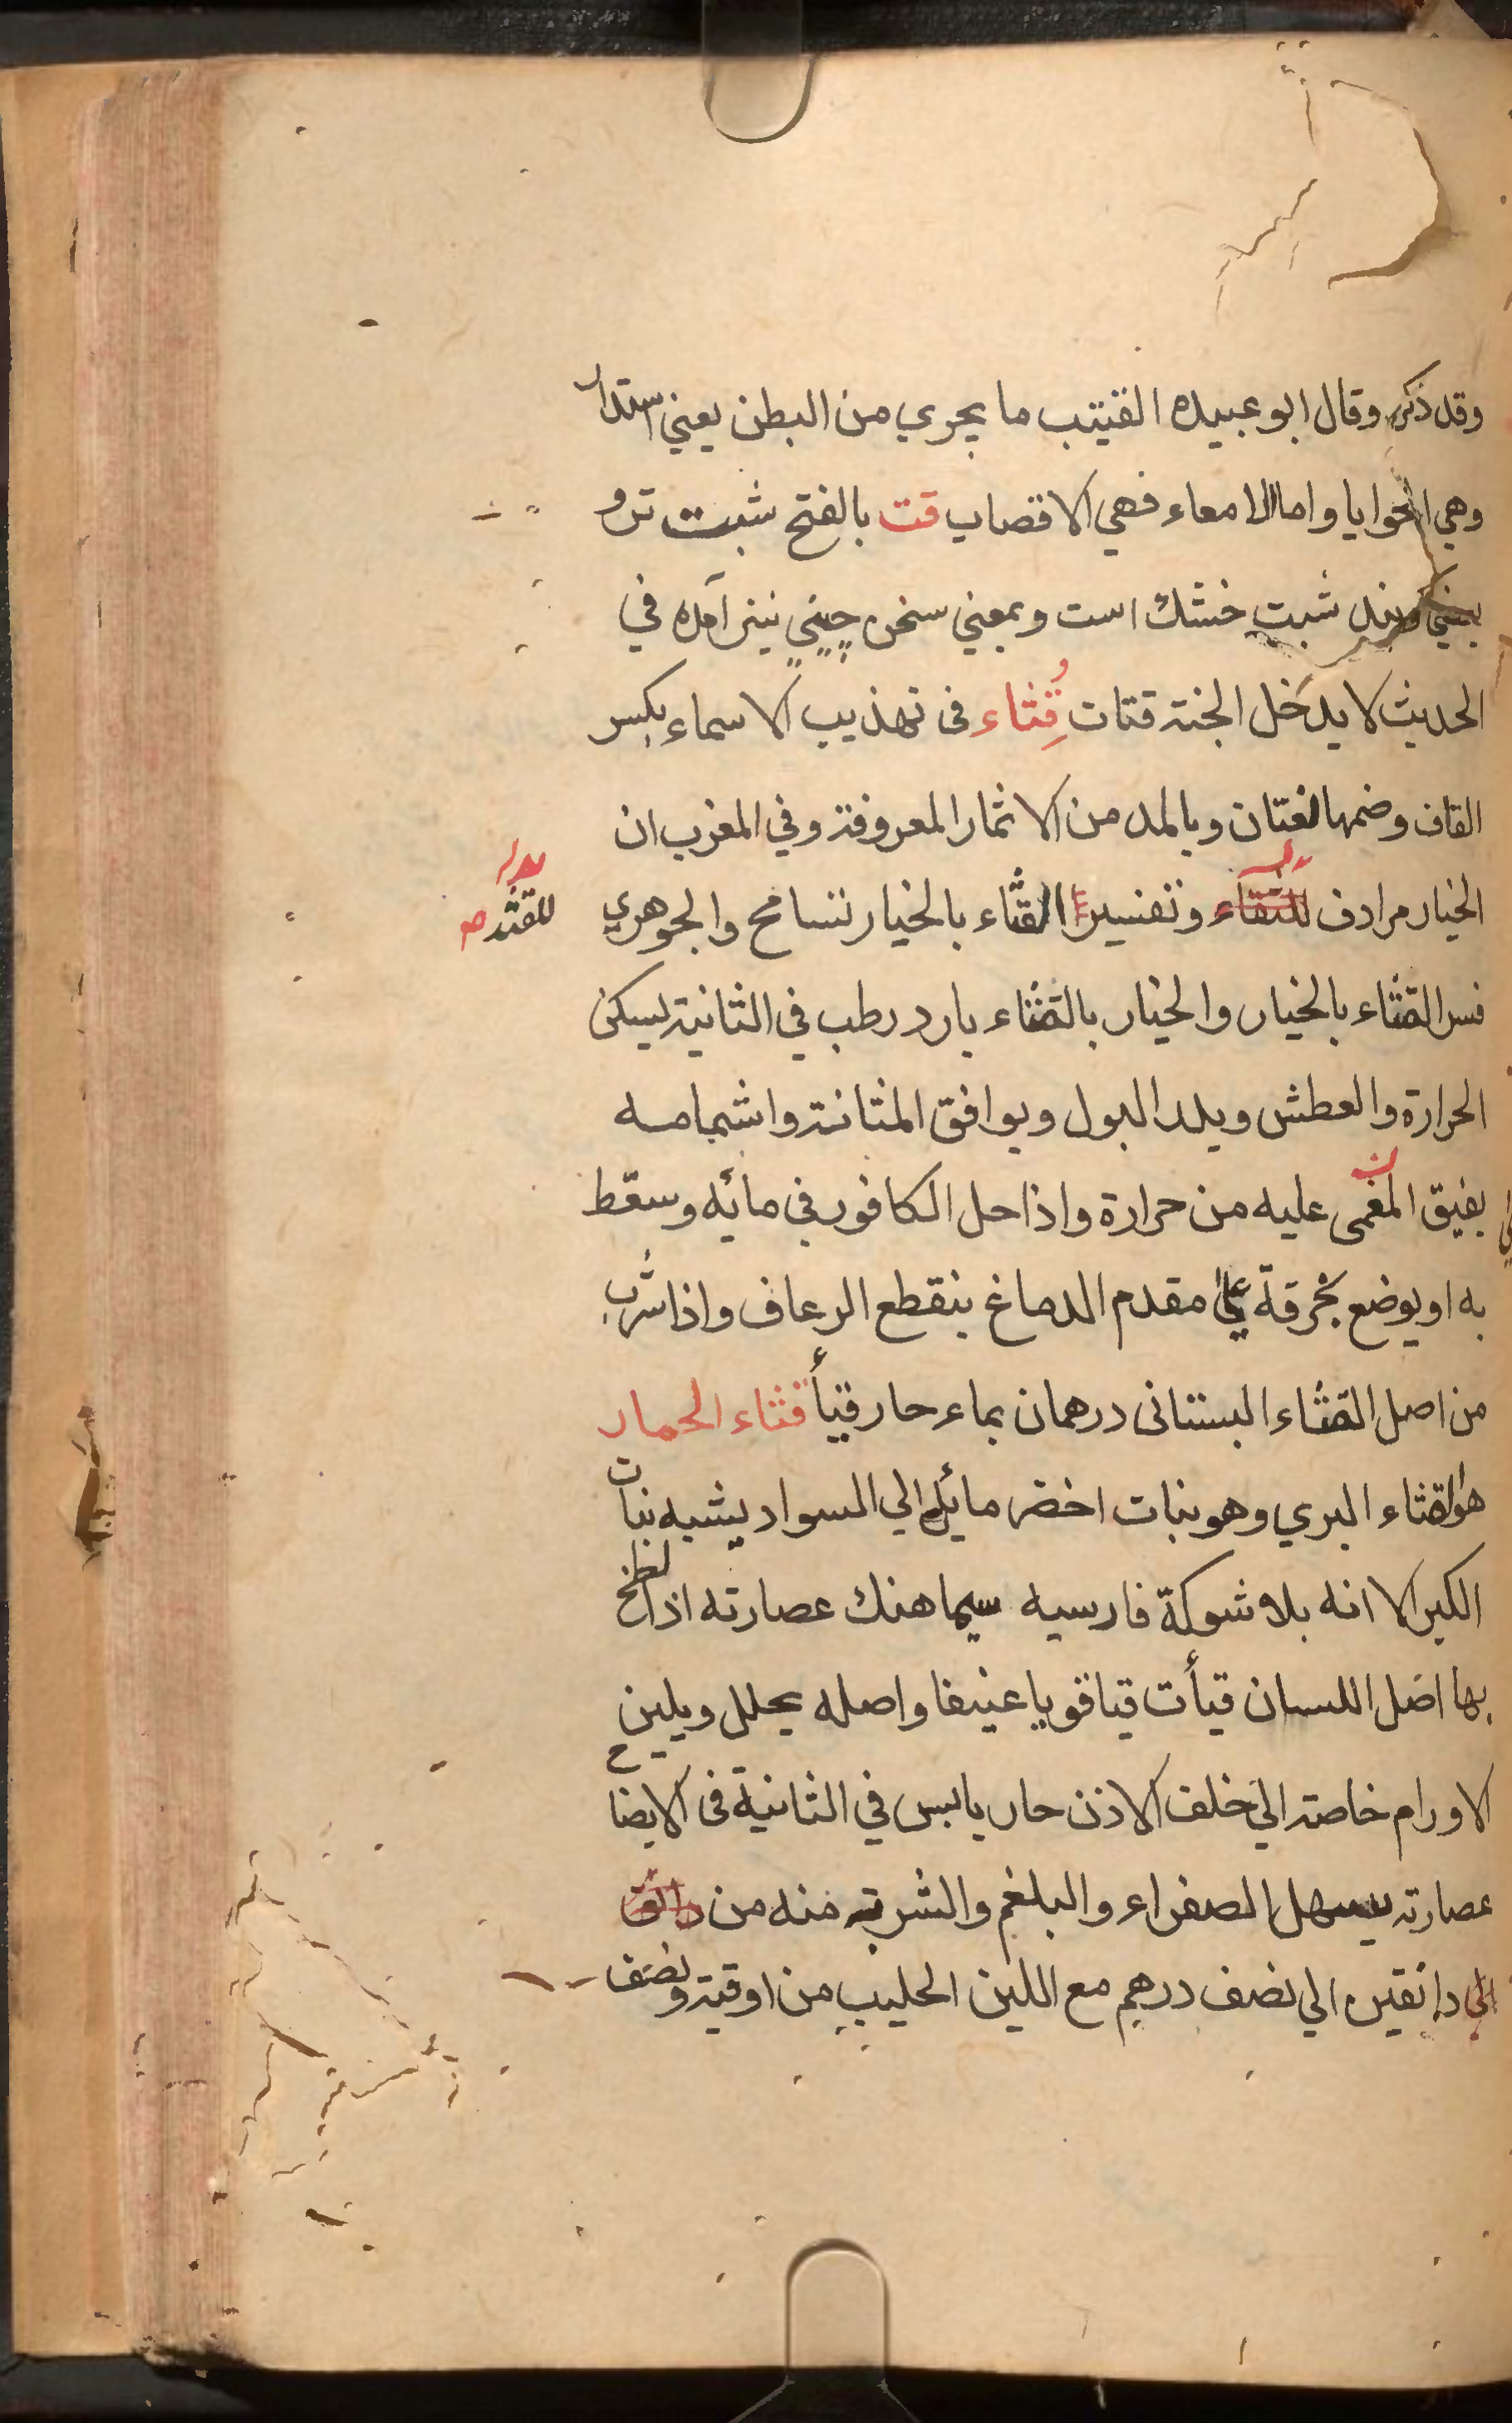 وقد ذكر وقال ابو عبيده القتب ما يحوي من البطن يعني استدار
وهي الحوايا واما الامعاء فهي الاقصاب قت بالفتح شبت تر و
شبت خشك است وبمعني سخن چيني نيز آمده في
الحديث لا يدخل الجنة قتات قثاء فى تهذيب الاسماء بكسر
القاف وضمها لغتان وبالمد من الاثمار المعروفة وفي المغرب ان
الخيار مرادف للقثاء وتفسير القثاء بالخيار تسامح والجوهري
للقثد صح
فسر القثاء بالخيار والخيار بالقثاء بارد رطب في الثانية ليسكن
الحرارة والعطش ويدر البول ويوافق المثانة واشمامه
يفيق المغمى عليه من حرارة واذا حل الكافور في مائه وسقط
به او يوضع بخرقة على مقدم الدماغ ينقطع الرعاف واذا شرب
من اصل القثاء البستانى درهمان بماء حار قيأ قثاء الحمار
هو القثاء البري وهو نبات اخضر مائل الي السواد يشبه نبات
الكبر الا انه بلا شوكة فارسيه سيماهنك عصارته اذا لطخ
بها اصل اللسان قيأت قيا قويا عنيفا واصله يحلل ويلين
الاورام خاصة الى خلف الاذن حار يابس في الثانية فى الايضاح
عصارته يسهل الصفراء والبلغم والشربة منه من دانق
الى دانقين الي نصف درهم مع اللبن الحليب من اوقية ونصف